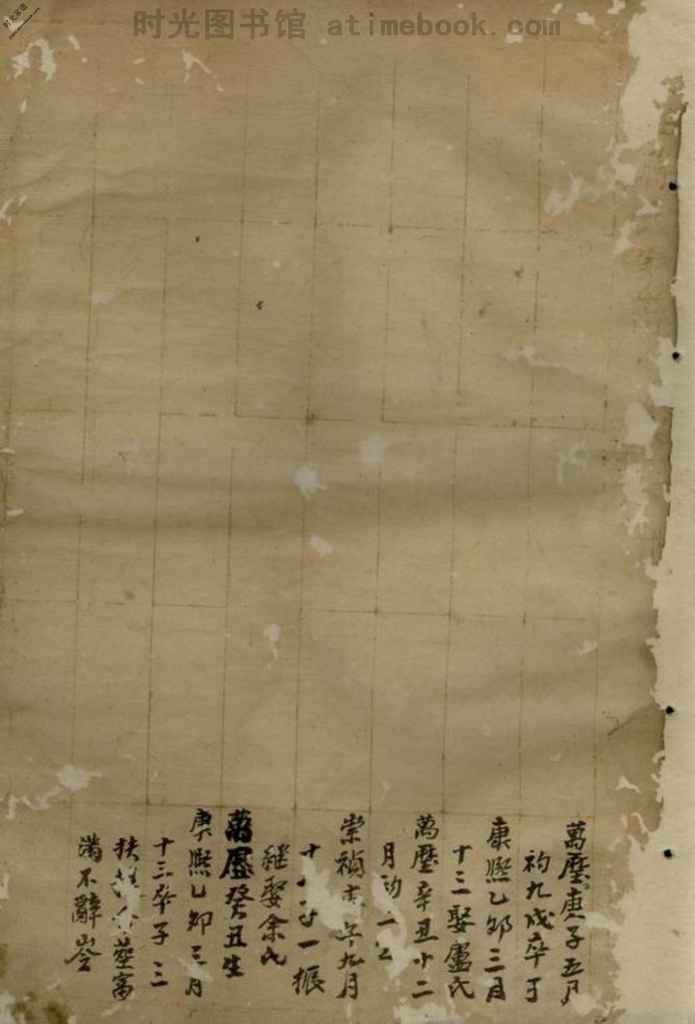 时光图书馆 atimebook.com
萬壓庚子五月
初九戌卒于
康熙乙卯三月
十三娶盧氏
萬壓辛丑十二
月初二
崇禎 年九月
十 一振
継娶余氏
萬壓癸丑生
庚熙乙卯三月
十三卒子三
扶 塟富
滿不辭